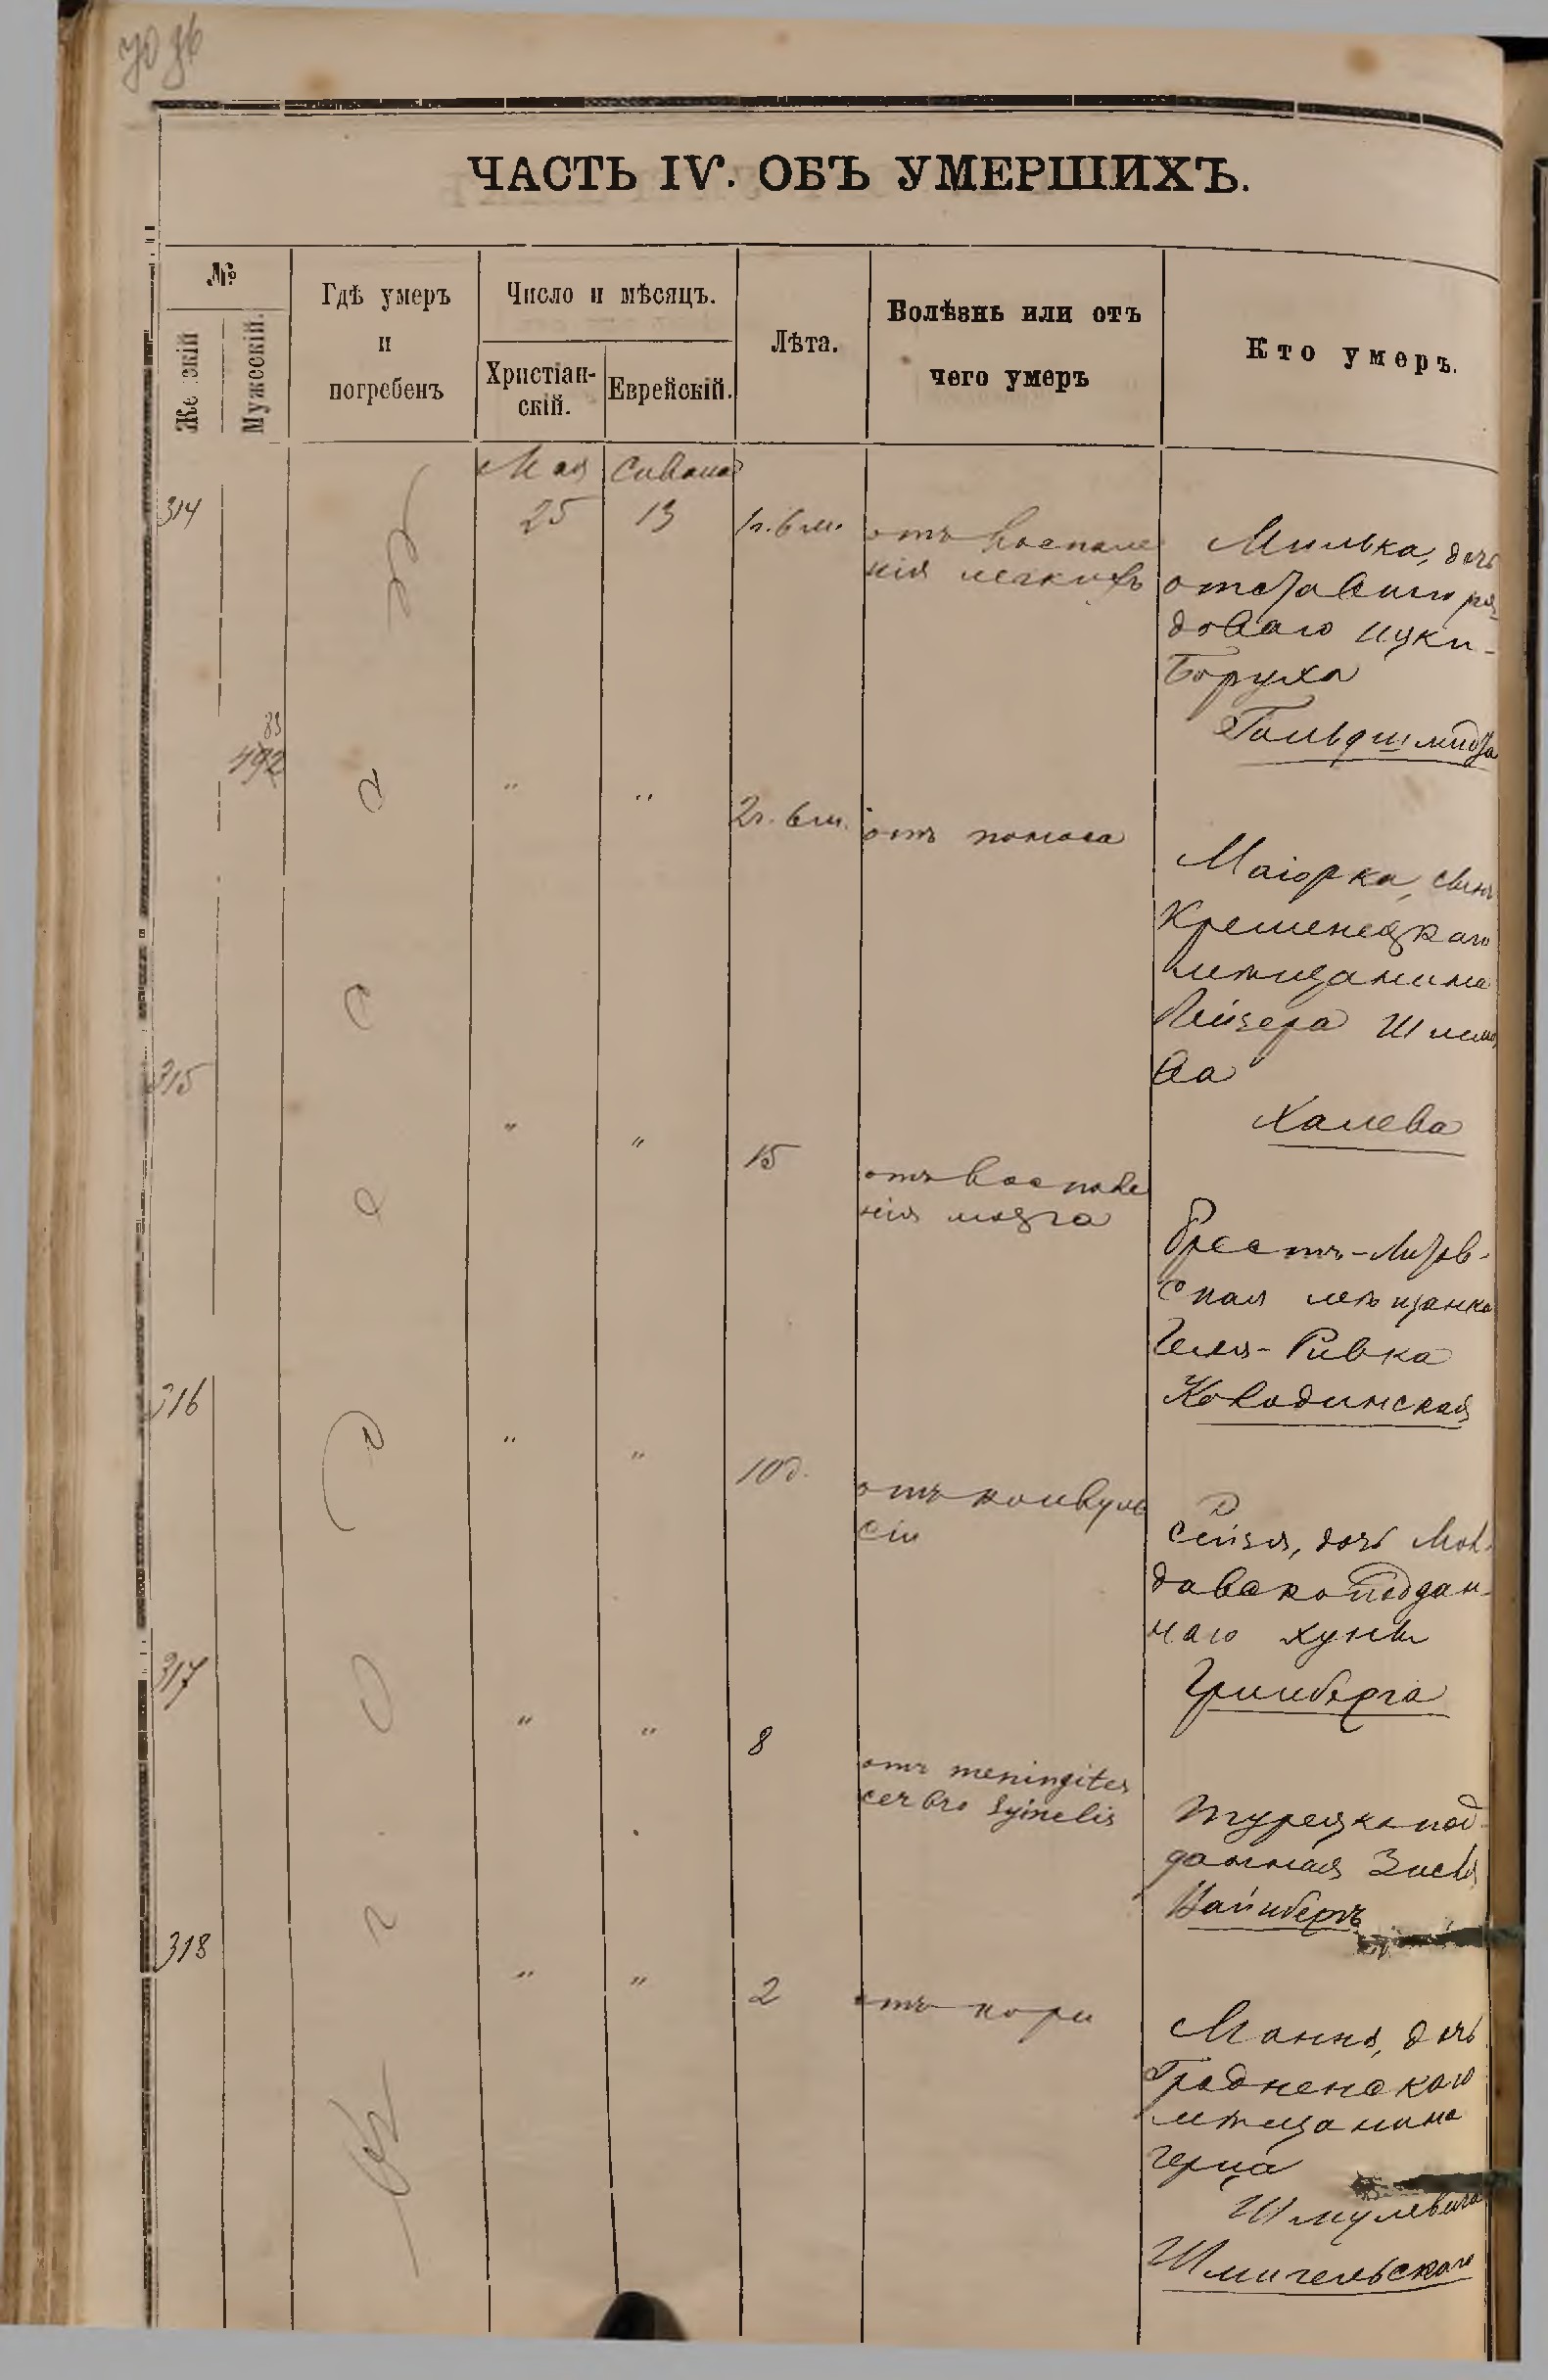 ЧАСТЬ IV. ОБЪ УМЕРШИХЪ.
№
Же скій
Мужескій.
Гдѣ умеръ
и
погребенъ
Число и мѣсяцъ.
Христіан-
скій.
Еврейскій.
Лѣта.
Болѣзнь или отъ
чего умеръ
Кто умеръ.
Мая Сивана
314 25 13 1г. 6 м.
отъ воспале
нія легкихъ
Милька, дочь
отставного ря
доваго Ицки-
Боруха
Гольдшмидта
83
492 " " 2г. 6 м. отъ поноса
Маіорка, сынъ
Кременецкаго
мѣщанина
Лейзера Шлемо
ва
Халева
315 " " 15
отъ воспале
нія мозга
Брестъ-Литов-
ская мѣщанка
Геля-Ривка
Колодинская
316 " " 10 д.
отъ конвуль
сіи
Рейзя, дочь Мол-
давскоподдан-
наго Хуны
Гринберга
317 " " 8
отъ meningites
cerbro spinelis
Турецкопод-
данная Зисля
Вайнберъ
318 " " 2 отъ кори
Мання, дочь
Гродненскаго
мѣщанина
Герца
Шмулевича
Шмигельскаго